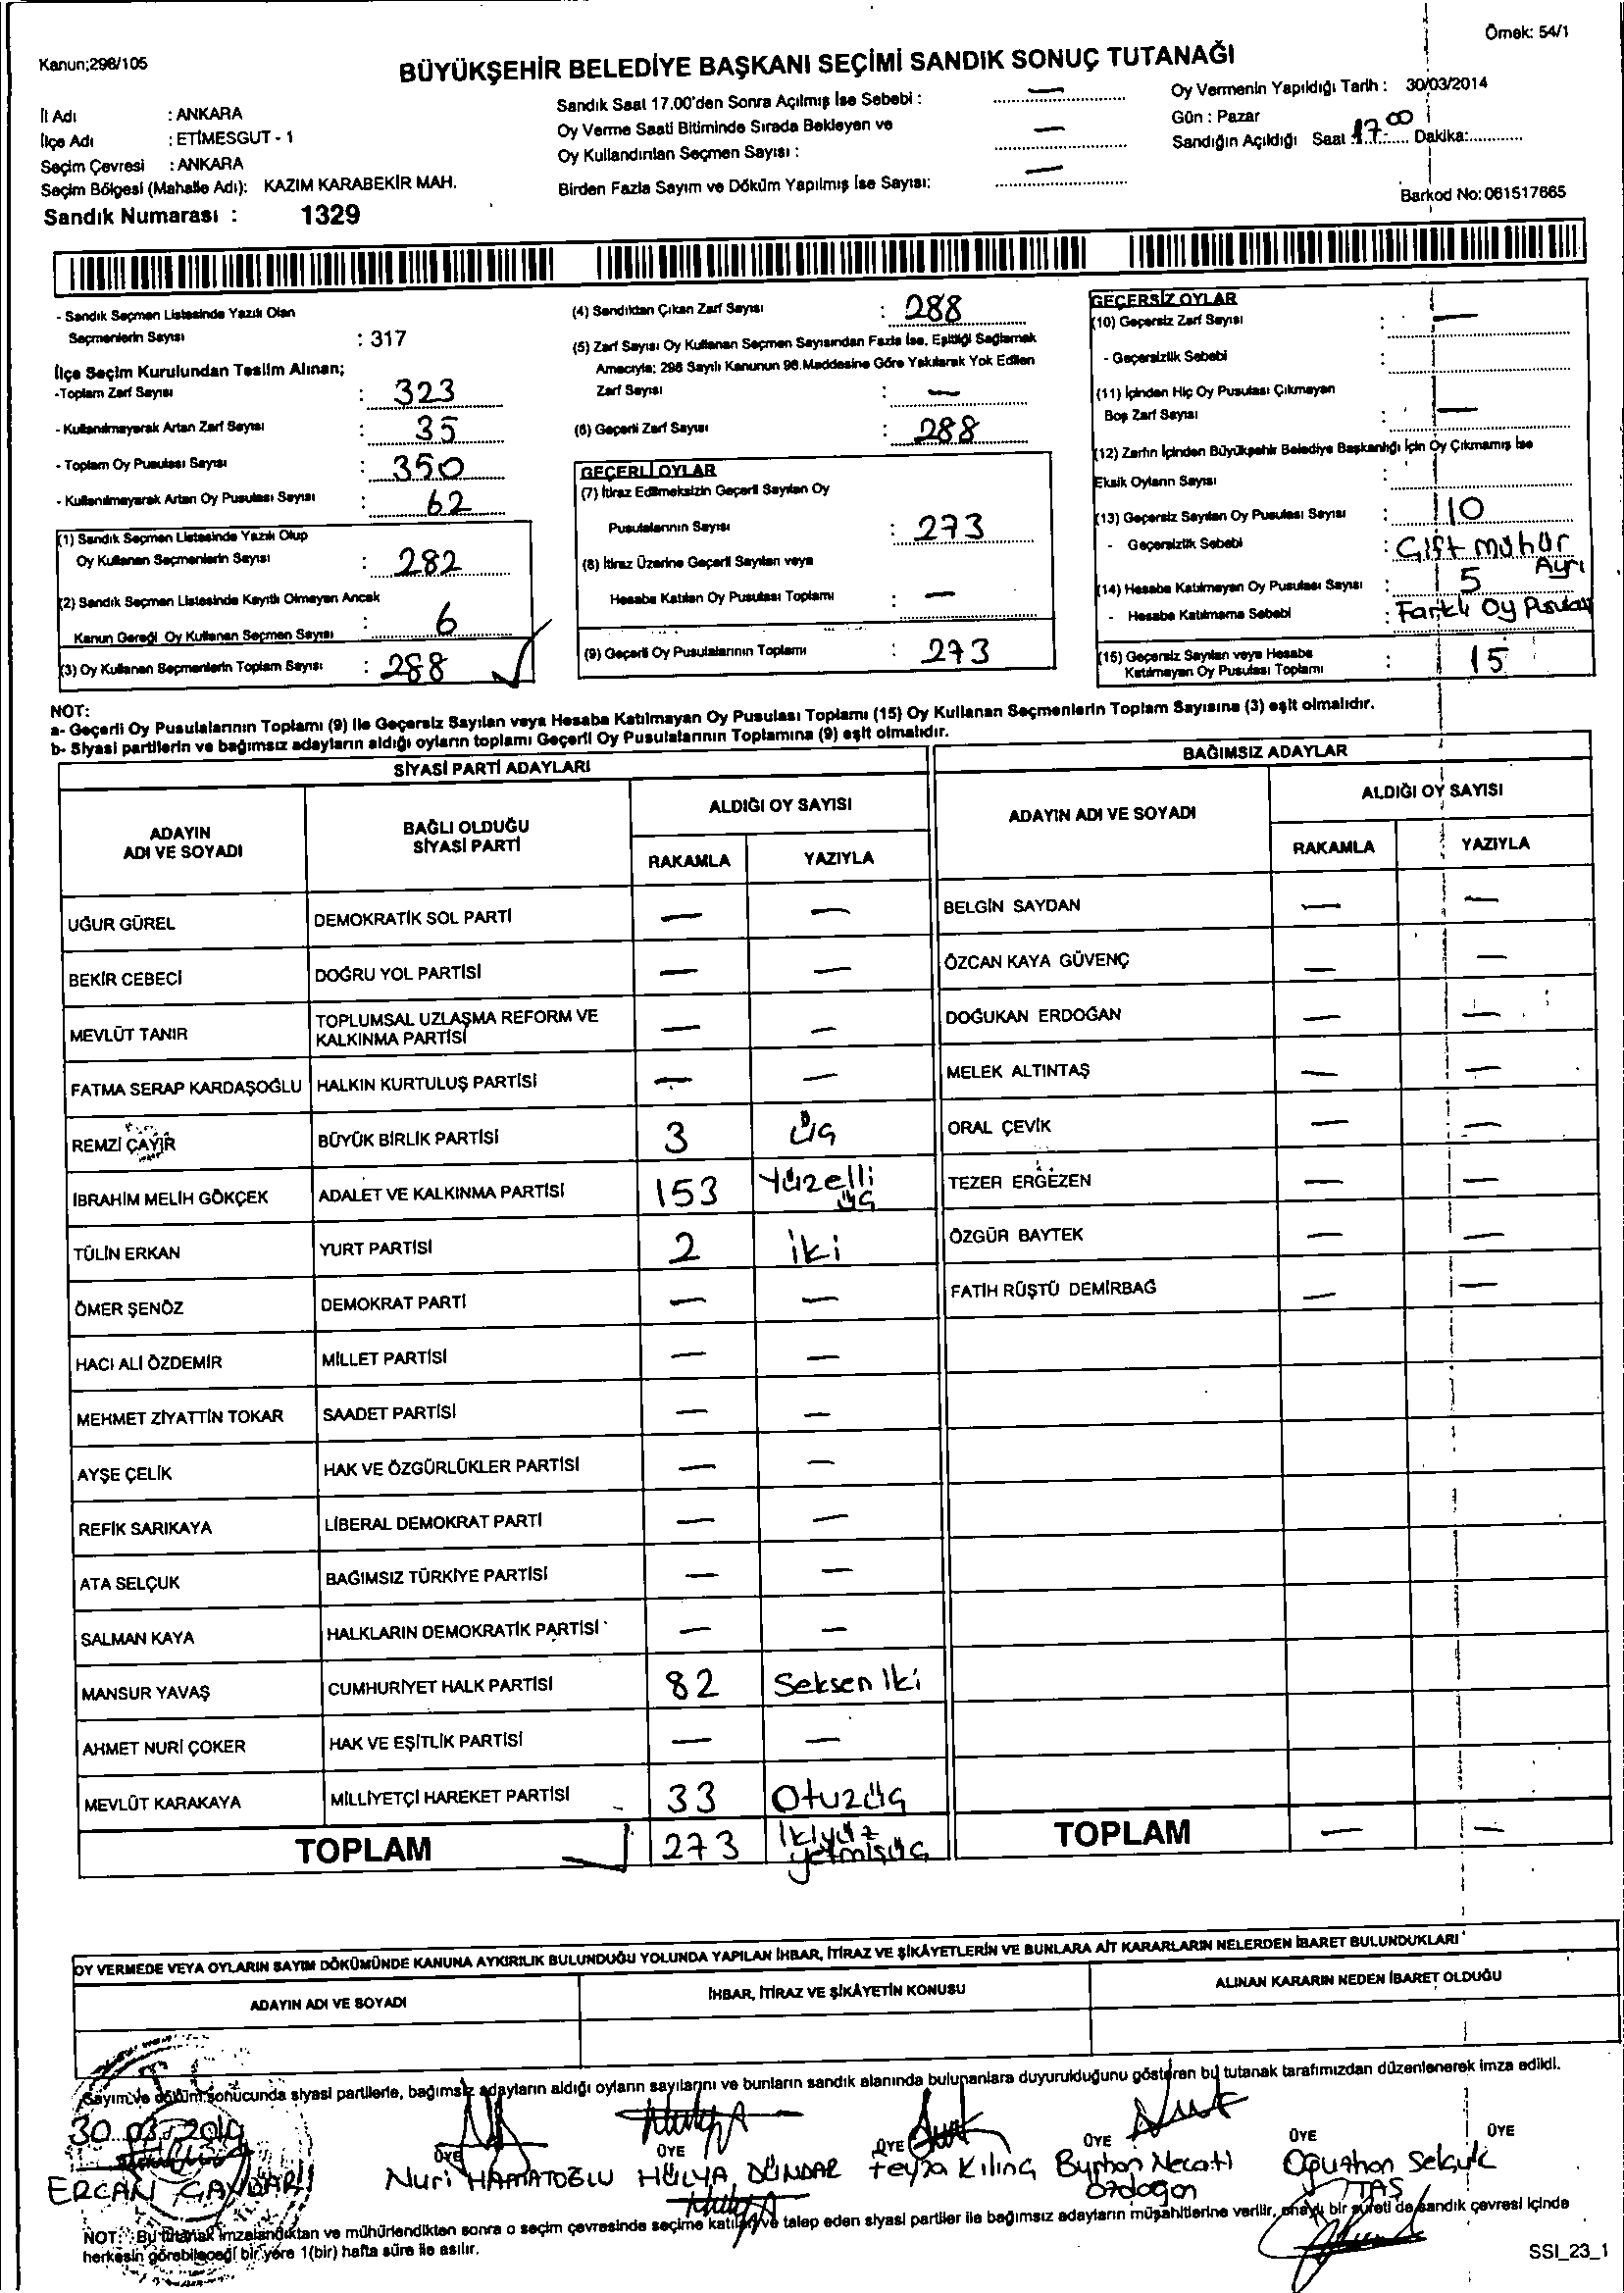 Örnek: 54/1
Kanun;298/105
BÜYÜKŞEHİR BELEDİYE BAŞKANI SEÇİMİ SANDIK SONUÇ TUTANAĞI
İl Adı : ANKARA
İlçe Adı : ETİMESGUT - 1
Seçim Çevresi : ANKARA
Seçim Bölgesi (Mahalle Adı): KAZIM KARABEKİR MAH.
Sandık Numarası : 1329
Sandık Saat 17.00'den Sonra Açılmış İse Sebebi : —
Oy Verme Saati Bitiminde Sırada Bekleyen ve
Oy Kullandırılan Seçmen Sayısı : —
Birden Fazla Sayım ve Döküm Yapılmış İse Sayısı: —
Oy Vermenin Yapıldığı Tarih : 30/03/2014
Gün : Pazar
Sandığın Açıldığı Saat 17:00 Dakika:
Barkod No: 061517665
- Sandık Seçmen Listesinde Yazılı Olan
Seçmenlerin Sayısı : 317
İlçe Seçim Kurulundan Teslim Alınan;
-Toplam Zarf Sayısı : 323
- Kullanılmayarak Artan Zarf Sayısı : 35
- Toplam Oy Pusulası Sayısı : 350
- Kullanılmayarak Artan Oy Pusulası Sayısı : 62
(1) Sandık Seçmen Listesinde Yazılı Olup
Oy Kullanan Seçmenlerin Sayısı : 282
(2) Sandık Seçmen Listesinde Kayıtlı Olmayan Ancak
Kanun Gereği Oy Kullanan Seçmen Sayısı : 6
(3) Oy Kullanan Seçmenlerin Toplam Sayısı : 288
(4) Sandıktan Çıkan Zarf Sayısı : 288
(5) Zarf Sayısı Oy Kullanan Seçmen Sayısından Fazla İse, Eşitliği Sağlamak
Amacıyla; 298 Sayılı Kanunun 98.Maddesine Göre Yakılarak Yok Edilen
Zarf Sayısı : —
(6) Geçerli Zarf Sayısı : 288
GEÇERLİ OYLAR
(7) İtiraz Edilmeksizin Geçerli Sayılan Oy
Pusulalarının Sayısı : 273
(8) İtiraz Üzerine Geçerli Sayılan veya
Hesaba Katılan Oy Pusulası Toplamı : —
(9) Geçerli Oy Pusulalarının Toplamı : 273
GEÇERSİZ OYLAR
(10) Geçersiz Zarf Sayısı : —
- Geçersizlik Sebebi :
(11) İçinden Hiç Oy Pusulası Çıkmayan
Boş Zarf Sayısı : —
(12) Zarfın İçinden Büyükşehir Belediye Başkanlığı İçin Oy Çıkmamış İse
Eksik Oyların Sayısı :
(13) Geçersiz Sayılan Oy Pusulası Sayısı : 10
- Geçersizlik Sebebi : Çift mühür
(14) Hesaba Katılmayan Oy Pusulası Sayısı : 5 Ayrı
- Hesaba Katılmama Sebebi : Farklı Oy Pusulası
(15) Geçersiz Sayılan veya Hesaba
Katılmayan Oy Pusulası Toplamı : 15
NOT:
a- Geçerli Oy Pusulalarının Toplamı (9) ile Geçersiz Sayılan veya Hesaba Katılmayan Oy Pusulası Toplamı (15) Oy Kullanan Seçmenlerin Toplam Sayısına (3) eşit olmalıdır.
b- Siyasi partilerin ve bağımsız adayların aldığı oyların toplamı Geçerli Oy Pusulalarının Toplamına (9) eşit olmalıdır.
SİYASİ PARTİ ADAYLARI
ADAYIN ADI VE SOYADI BAĞLI OLDUĞU SİYASİ PARTİ ALDIĞI OY SAYISI
RAKAMLA YAZIYLA
UĞUR GÜREL DEMOKRATİK SOL PARTİ — —
BEKİR CEBECİ DOĞRU YOL PARTİSİ — —
MEVLÜT TANIR TOPLUMSAL UZLAŞMA REFORM VE KALKINMA PARTİSİ — —
FATMA SERAP KARDAŞOĞLU HALKIN KURTULUŞ PARTİSİ — —
REMZİ ÇAYIR BÜYÜK BİRLİK PARTİSİ 3 üç
İBRAHİM MELİH GÖKÇEK ADALET VE KALKINMA PARTİSİ 153 Yüzelli üç
TÜLİN ERKAN YURT PARTİSİ 2 iki
ÖMER ŞENÖZ DEMOKRAT PARTİ — —
HACI ALİ ÖZDEMİR MİLLET PARTİSİ — —
MEHMET ZİYATTİN TOKAR SAADET PARTİSİ — —
AYŞE ÇELİK HAK VE ÖZGÜRLÜKLER PARTİSİ — —
REFİK SARIKAYA LİBERAL DEMOKRAT PARTİ — —
ATA SELÇUK BAĞIMSIZ TÜRKİYE PARTİSİ — —
SALMAN KAYA HALKLARIN DEMOKRATİK PARTİSİ — —
MANSUR YAVAŞ CUMHURİYET HALK PARTİSİ 82 Seksen iki
AHMET NURİ ÇOKER HAK VE EŞİTLİK PARTİSİ — —
MEVLÜT KARAKAYA MİLLİYETÇİ HAREKET PARTİSİ 33 Otuzüç
TOPLAM 273 İkiyüz yetmişüç
BAĞIMSIZ ADAYLAR
ADAYIN ADI VE SOYADI ALDIĞI OY SAYISI
RAKAMLA YAZIYLA
BELGİN SAYDAN — —
ÖZCAN KAYA GÜVENÇ — —
DOĞUKAN ERDOĞAN — —
MELEK ALTINTAŞ — —
ORAL ÇEVİK — —
TEZER ERGEZEN — —
ÖZGÜR BAYTEK — —
FATİH RÜŞTÜ DEMİRBAĞ — —
TOPLAM — —
OY VERMEDE VEYA OYLARIN SAYIM DÖKÜMÜNDE KANUNA AYKIRILIK BULUNDUĞU YOLUNDA YAPILAN İHBAR, İTİRAZ VE ŞİKÂYETLERİN VE BUNLARA AİT KARARLARIN NELERDEN İBARET BULUNDUKLARI
ADAYIN ADI VE SOYADI İHBAR, İTİRAZ VE ŞİKÂYETİN KONUSU ALINAN KARARIN NEDEN İBARET OLDUĞU
Sayım ve döküm sonucunda siyasi partilerle, bağımsız adayların aldığı oyların sayılarını ve bunların sandık alanında bulunanlara duyurulduğunu gösteren bu tutanak tarafımızdan düzenlenerek imza edildi.
30.03.2014
ÜYE ÜYE ÜYE ÜYE ÜYE ÜYE
ERCAN Nuri HAMATOĞLU HÜLYA DÜNDAR Feyza Kılınç Burhan Necati Özdoğan Oğuzhan Selçuk TAŞ
NOT: Bu tutanak imzalandıktan ve mühürlendikten sonra o seçim çevresinde seçime katılan ve talep eden siyasi partiler ile bağımsız adayların müşahitlerine verilir, onaylı bir sureti de sandık çevresi içinde
herkesin görebileceği bir yere 1(bir) hafta süre ile asılır.
SSI_23_1